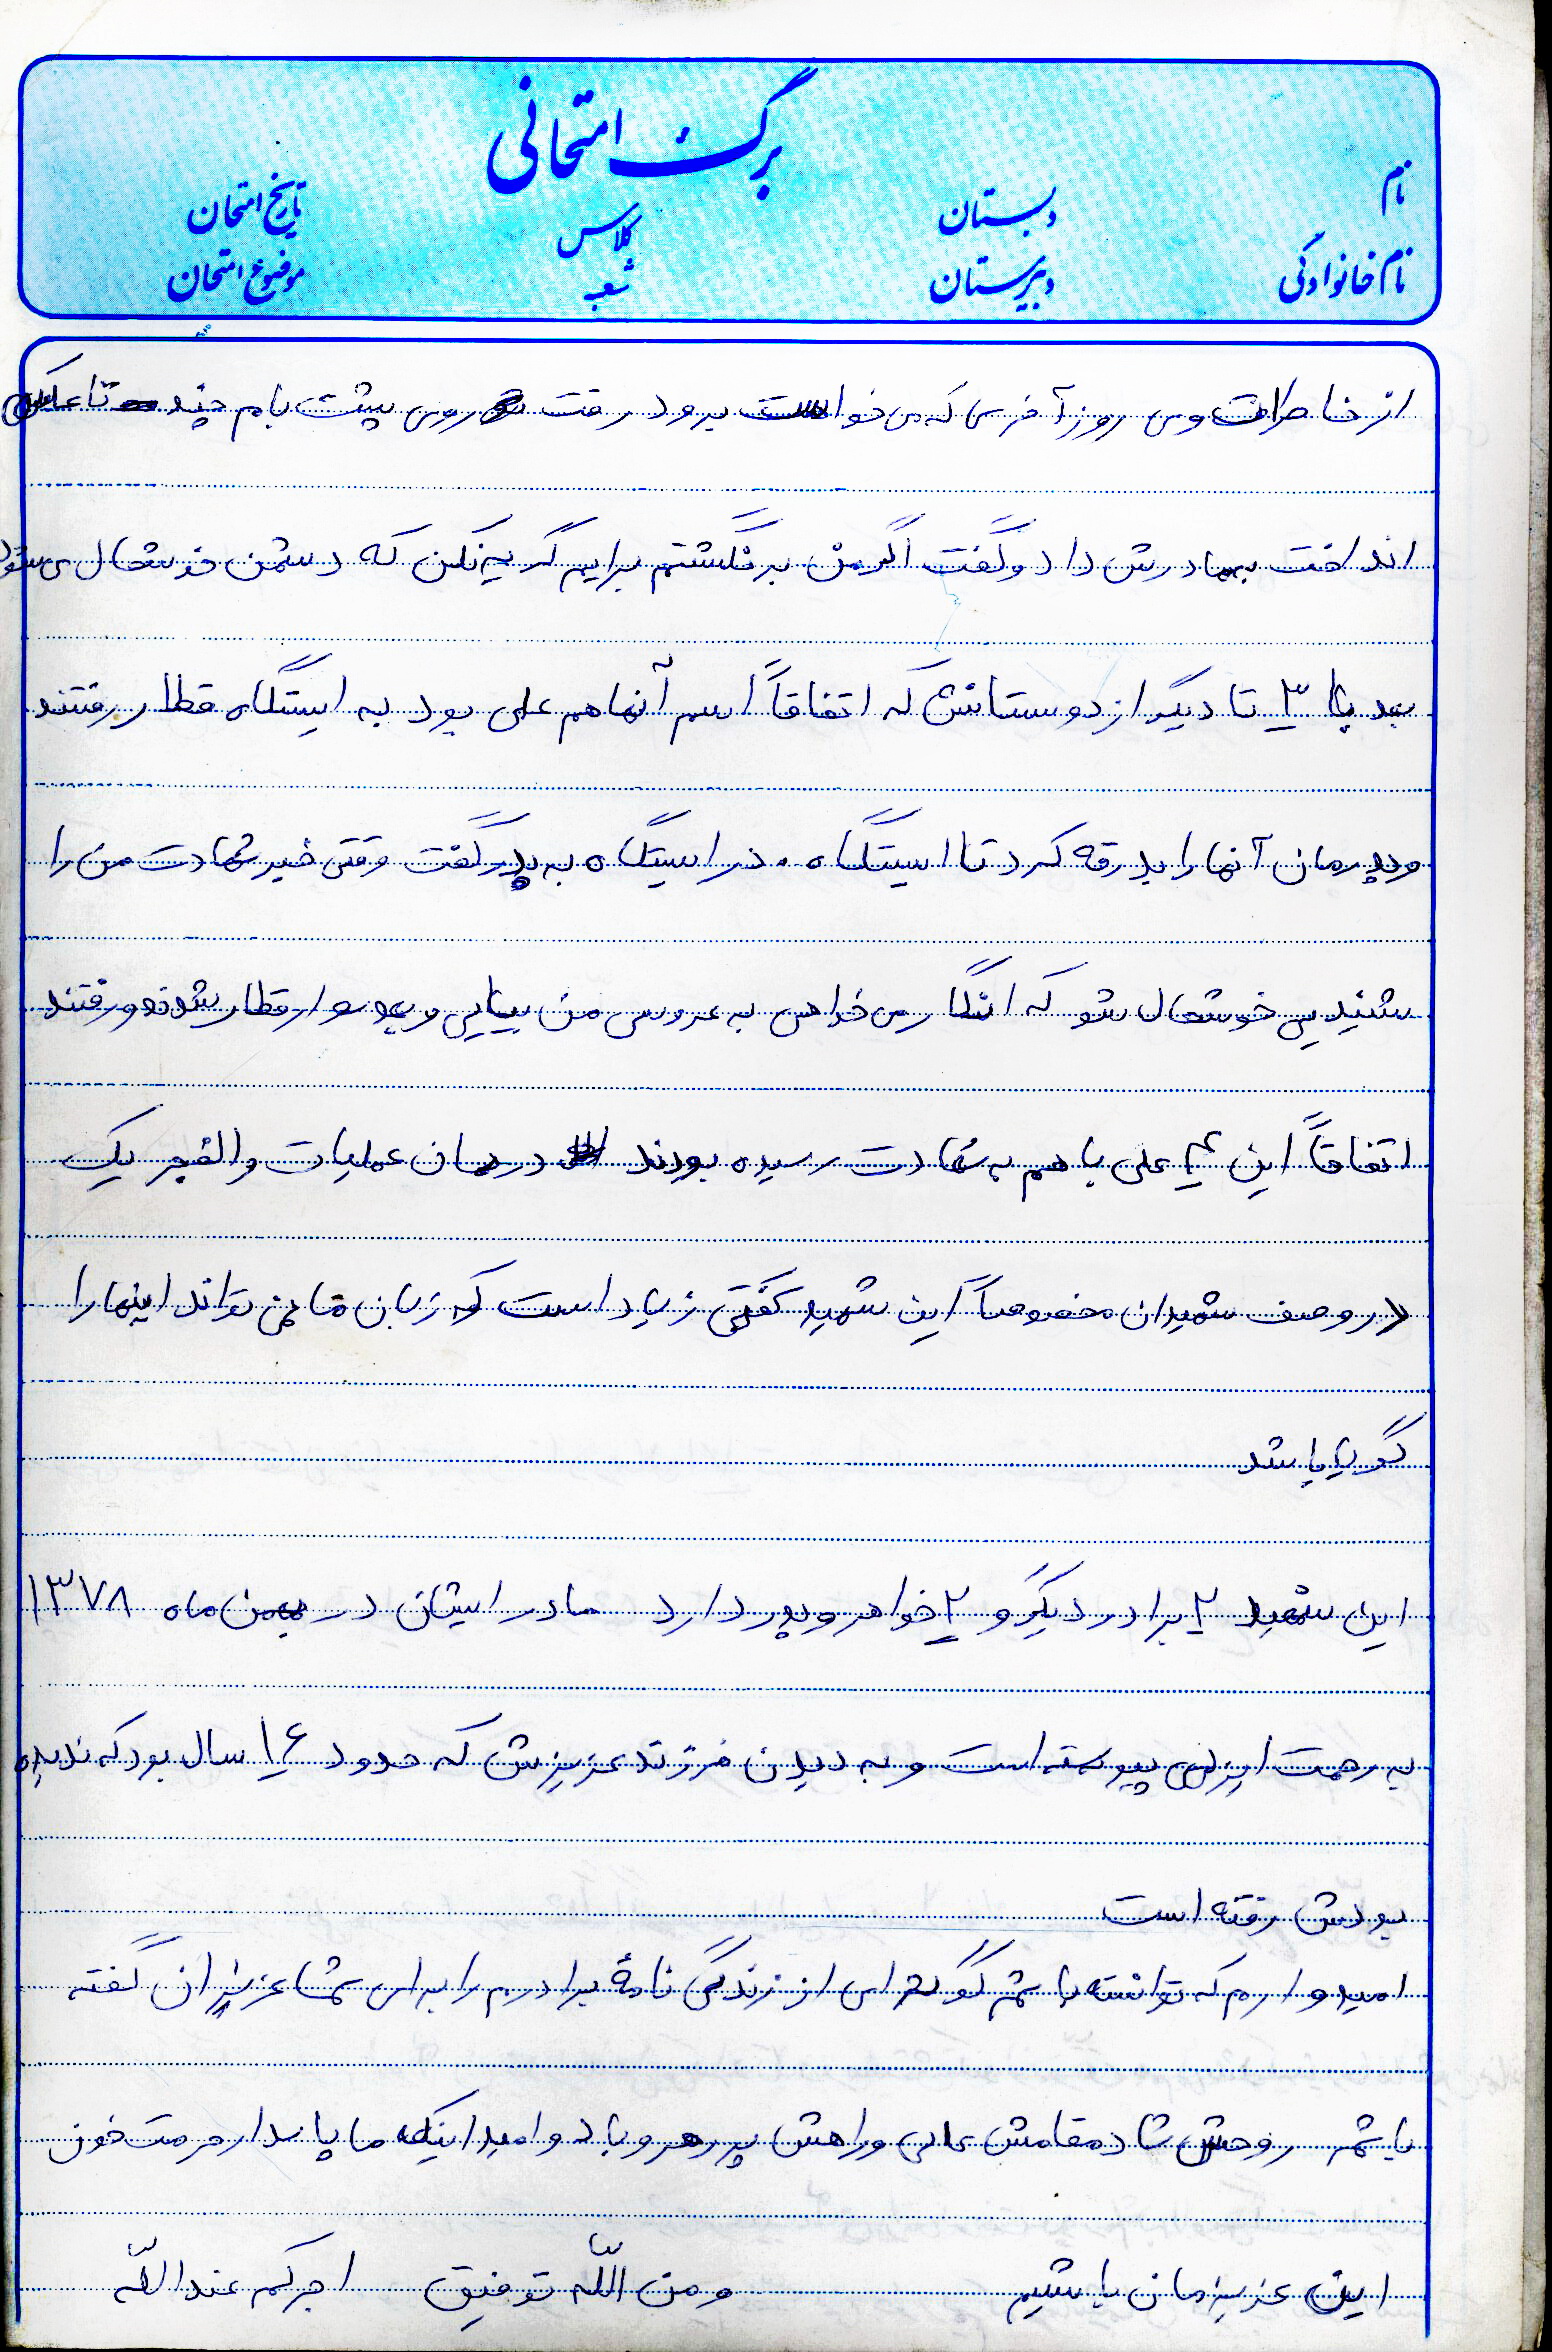 برگ امتحانی
نام
دبستان
کلاس
تاریخ امتحان
نام خانوادگی
دبیرستان
شعبه
موضوع امتحان
از خاطرات وی روز آخری که می خواست برود رفت روی پشت بام چند تا عکس
انداخت به مادرش داد و گفت اگر من برنگشتم برایم گریه نکن که دشمن خوشحال می شود
بعد با ۳ تا دیگر از دوستانش که اتفاقاً اسم آنها هم علی بود به ایستگاه قطار رفتند
و پدرمان آنها را بدرقه کرد تا ایستگاه . در ایستگاه به پدر گفت وقتی خبر شهادت من را
شنیدی خوشحال شو که انگار می خواهی به عروسی من بیایی و بعد سوار قطار شدند و رفتند
اتفاقاً این ۴ علی با هم به شهادت رسیده بودند در همان عملیات والفجر یک
در وصف شهیدان مخصوصاً این شهید گفتنی زیاد است که زبان ما نمی تواند اینها را
گویا باشد
این شهید ۲ برادر دیگر و ۲ خواهر و پدر دارد مادر ایشان در بهمن ماه ۱۳۷۸
به رحمت ایزدی پیوسته است و به دیدن فرزند عزیزش که حدود ۱۶ سال بود که ندیده
بودش رفته است
امیدوارم که توانسته باشم گوشه ای از زندگی نامهٔ برادرم را برای شما عزیزان گفته
باشم روحش شاد مقامش عالی و راهش پر رهرو باد و امید اینکه ما پاسدار حرمت خون
این عزیزمان باشیم و من الله توفیق اجرکم عندالله